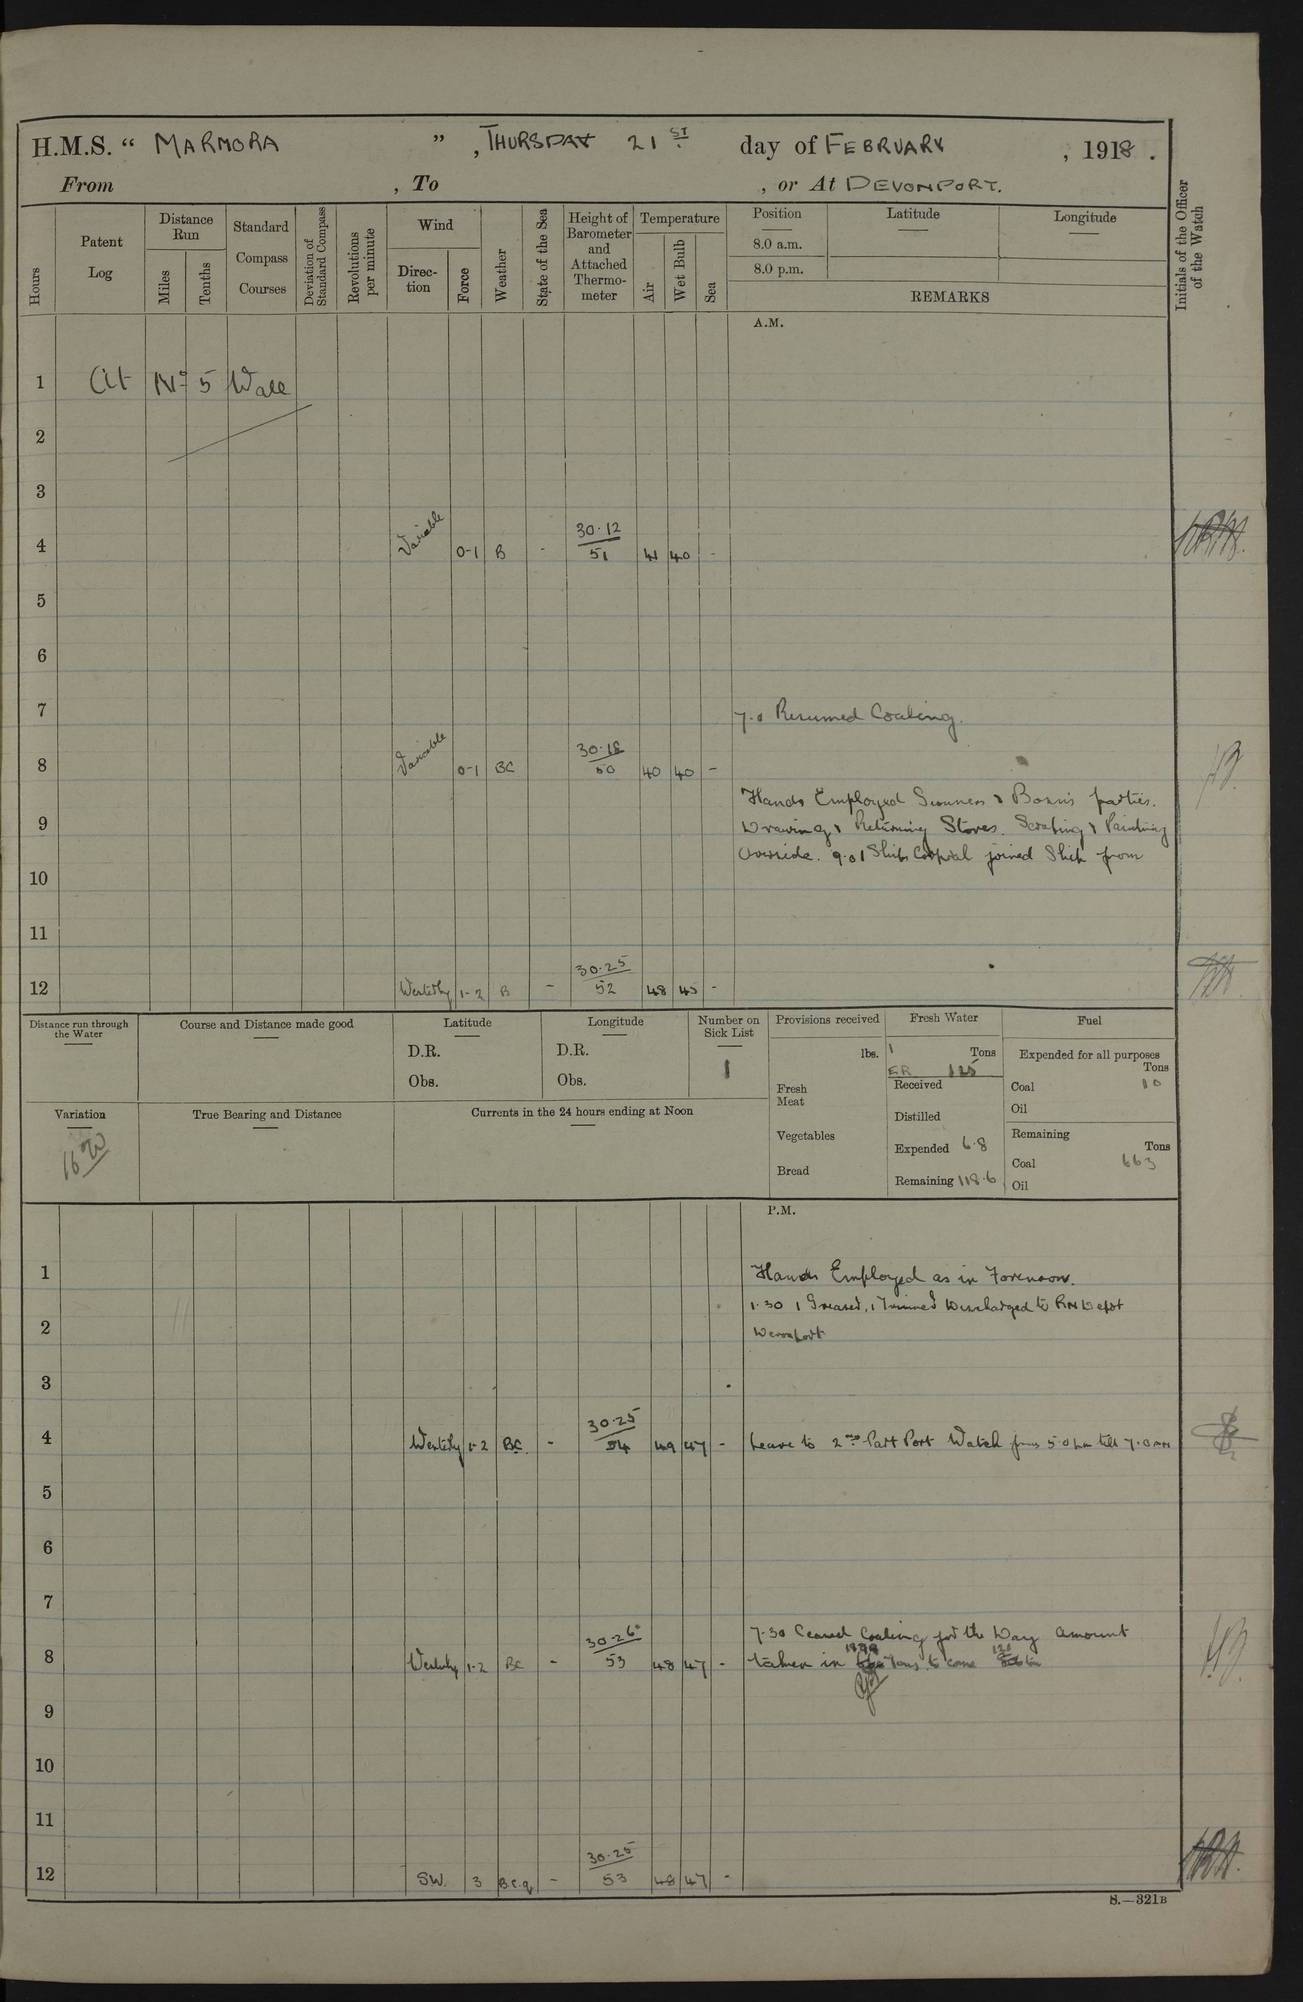 H.M.S. “ MARMORA ” , THURSDAY 21ST day of FEBRUARY , 1918 .
From , To , or At DEVONPORT.
Hours
Patent Log
Distance Run
Miles
Tenths
Standard Compass Courses
Deviation of Standard Compass
Revolutions per minute
Wind
Direc-tion
Force
Weather
State of the Sea
Height of Barometer and Attached Thermo-meter
Temperature
Air
Wet Bulb
Sea
Position
8.0 a.m.
8.0 p.m.
Latitude
Longitude
REMARKS
Initials of the Officer of the Watch
A.M.
1 At No 5 Wall
2
3
4 Variable 0-1 B - 30.12 51 41 40 -
5
6
7 7.0 Resumed Coaling.
8 Variable 0-1 BC 30.18 50 40 40 -
Hands Employed Gunners & Bosuns parties.
9 Drawing & Returning Stores. Scraping & Painting
Overside. 9.0 1 Ships Corporal joined Ship from
10
11
12 Westerly 1-2 B - 30.25 52 48 45 -
Distance run through the Water
Course and Distance made good
Latitude
D.R.
Obs.
Longitude
D.R.
Obs.
Number on Sick List
1
Provisions received
lbs.
Fresh Meat
Vegetables
Bread
Fresh Water
1 Tons
ER 125
Received
Distilled
Expended 6.8
Remaining 118.6
Fuel
Expended for all purposes
Tons
Coal 10
Oil
Remaining
Tons
Coal 663
Oil
Variation
16 W
True Bearing and Distance
Currents in the 24 hours ending at Noon
P.M.
1 Hands Employed as in Forenoon.
1.30 1 Greaser, 1 Trimmer Discharged to RN Depot
2 Devonport
3
4 Westerly 1-2 BC. - 30.25 54 49 47 - Leave to 2nd Part Port Watch from 5.0 pm till 7.0 am
5
6
7
7.30 Ceased Coaling for the Day Amount
8 Westerly 1-2 BC - 30.26 53 48 47 - taken in Tons to come
9
10
11
12 SW. 3 B.C.q - 30.25 53 48 47 -
S.—321B